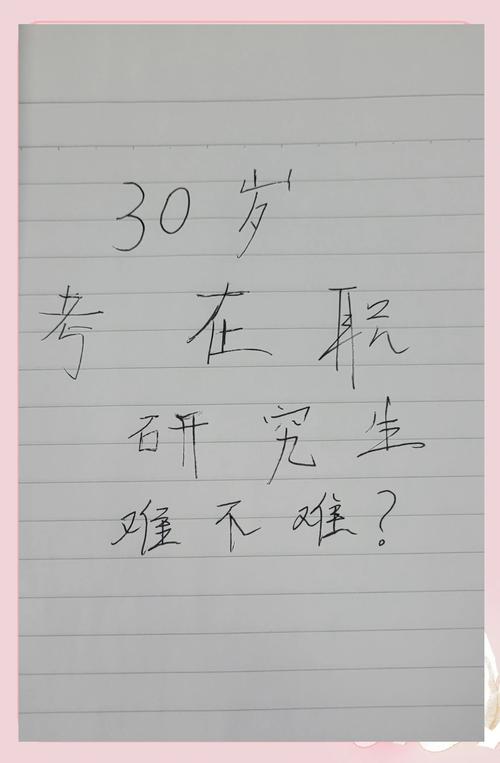 30岁
考在职
研究生
难不难?